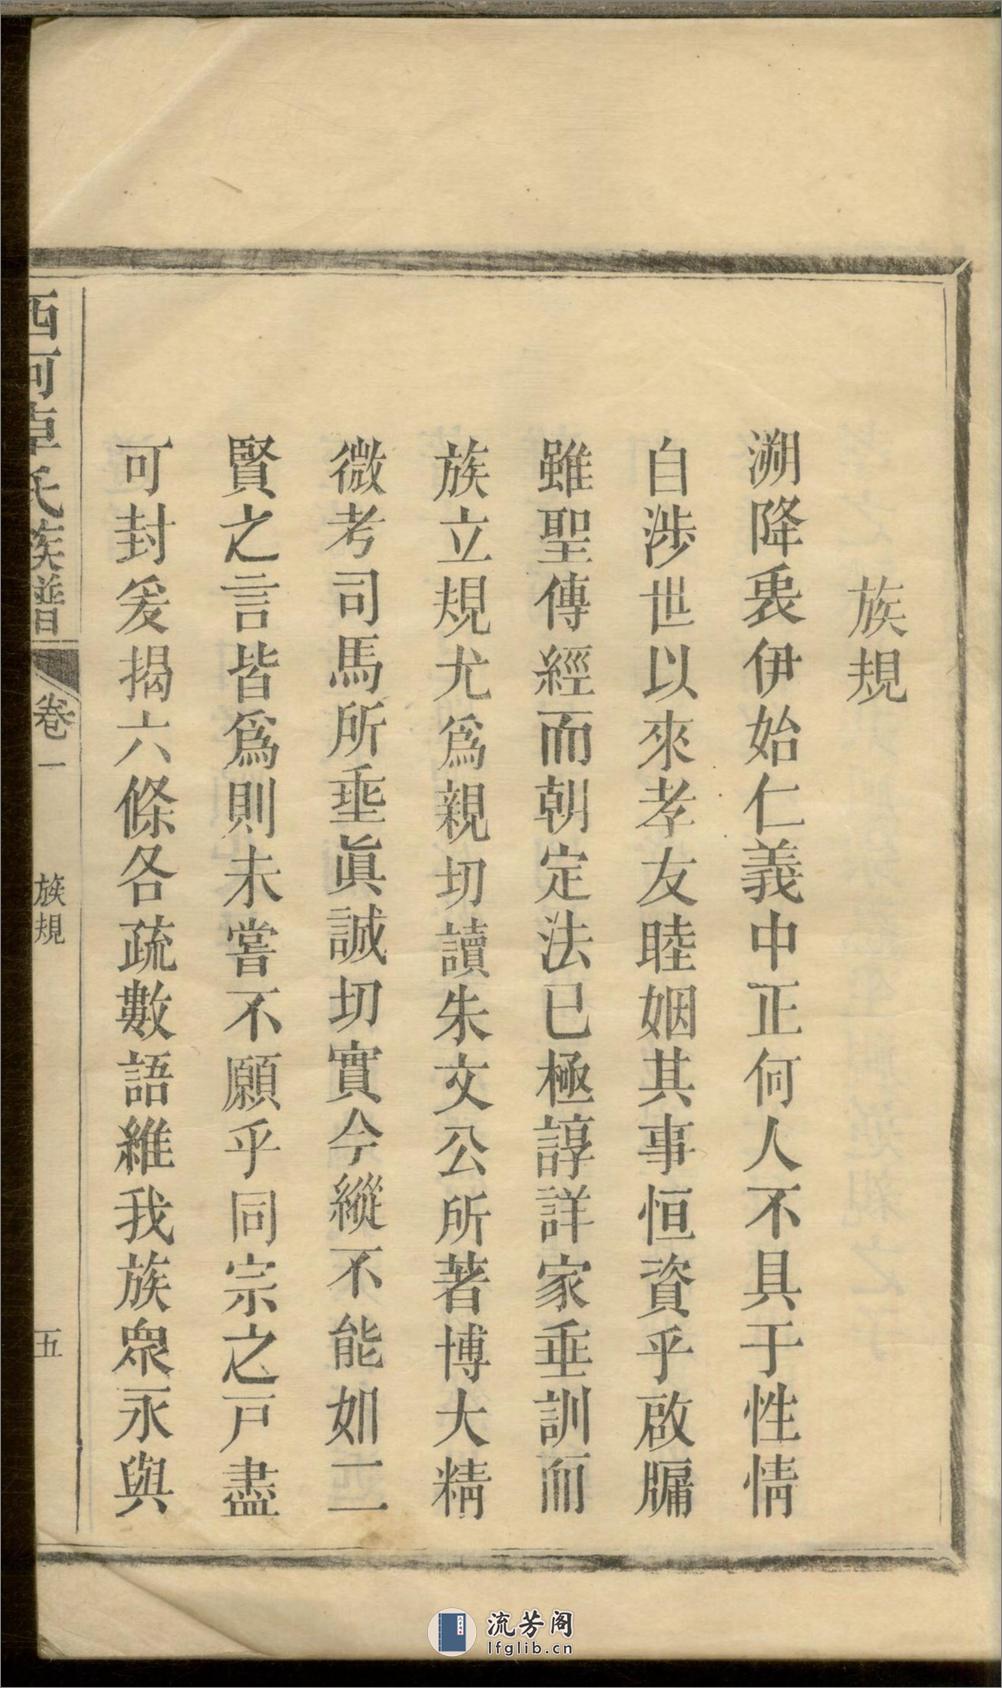 族規
溯降衷伊始仁義中正何人不具于性情
自涉世以來孝友睦姻其事恒資乎啟牖
雖聖傳經而朝定法已極諄詳家垂訓而
族立規尤爲親切讀朱文公所著博大精
微考司馬所垂眞誠切實今縱不能如二
賢之言皆爲則未嘗不願乎同宗之戸盡
可封爰揭六條各疏數語維我族衆永與
西河卓氏族譜
卷一
族規
五
流芳阁
lfglib.cn